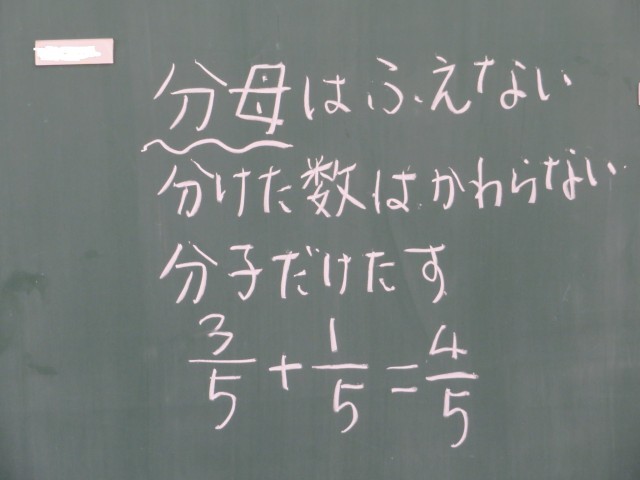 分母はふえない
分けた数はかわらない
分子だけたす
3/5 + 1/5 = 4/5